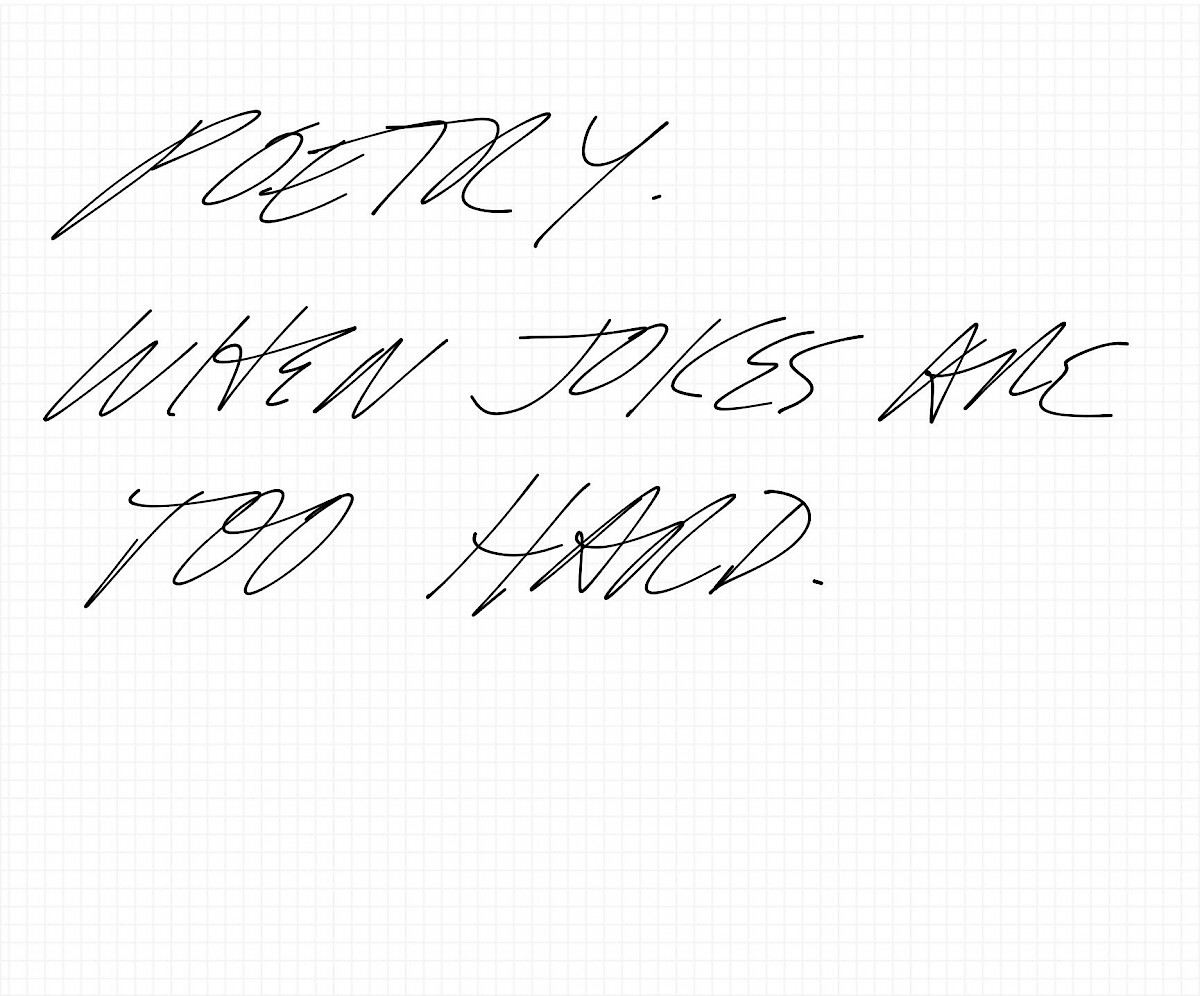 POETRY.
WHEN JOKES ARE
TOO HARD.